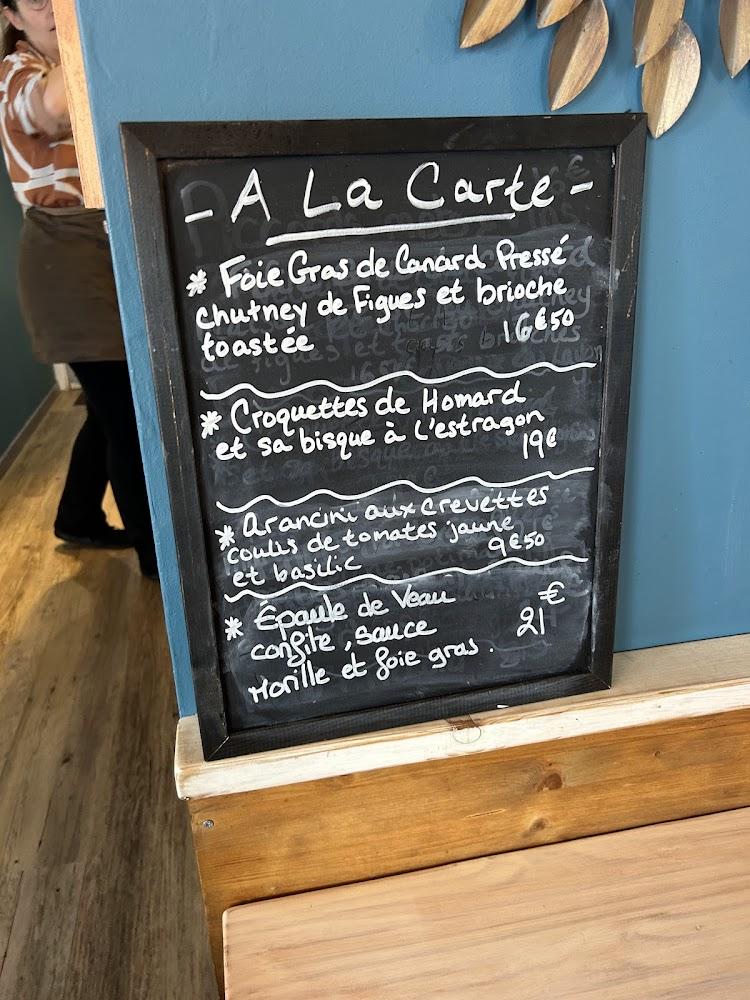 - A La Carte -
* Foie Gras de Canard Pressé
chutney de Figues et brioche
toastée 16€50
* Croquettes de Homard
et sa bisque à l'estragon
19€
* Arancini aux crevettes
coulis de tomates jaune
et basilic 9€50
* Épaule de Veau
confite, sauce 21€
Morille et foie gras.